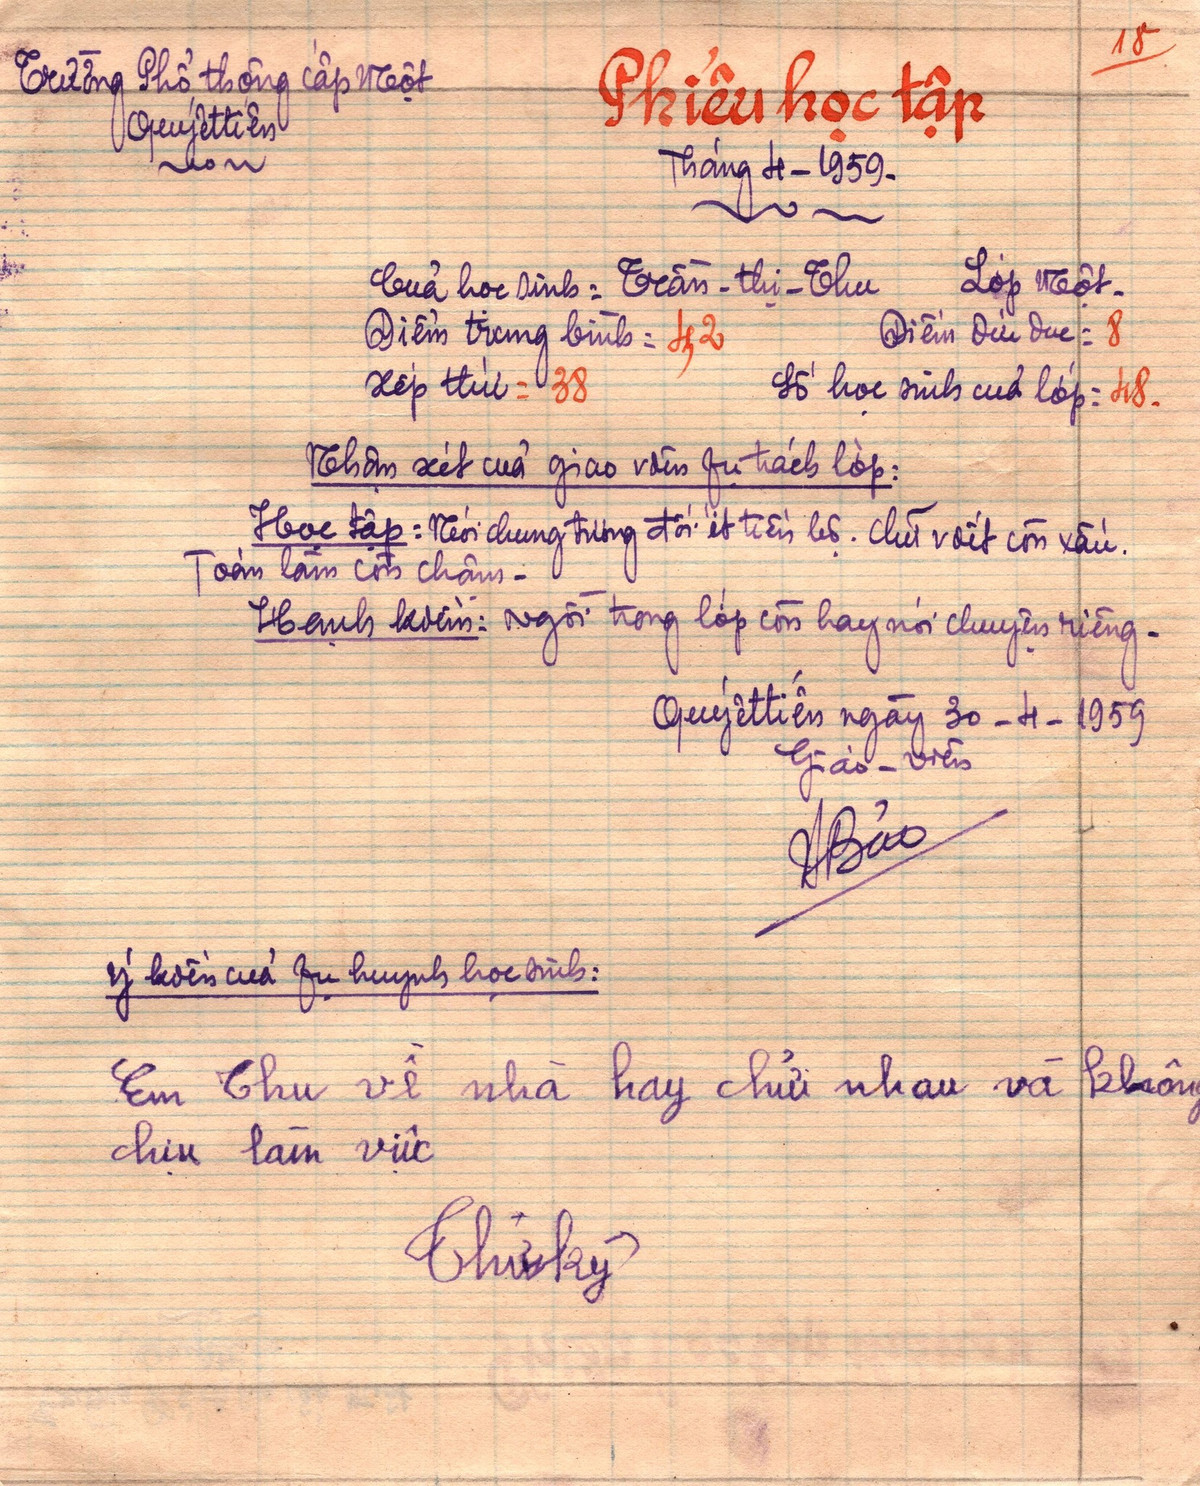 18
Trường Phổ thông cấp Một
Quyết tiến
Phiếu học tập
Tháng 4 - 1959.
Của học sinh = Trần - thị - Thu Lớp Một.
Điểm trung bình = 4,2 Điểm đức dục = 8
Xếp thứ = 38 Số học sinh cuả lớp = 48.
Nhận xét cuả giao viên fụ trách lớp:
Học tập: Nói chung tương đối ít tiến bộ. Chữ viết còn xấu.
Toán làm còn chậm -
Hạnh kiểm: Ngồi trong lớp còn hay nói chuyện riêng -
Quyết tiến ngày 30 - 4 - 1959
Giáo - viên
Bảo
Ý kiến cuả fụ huynh học sinh:
Em Thu về nhà hay chửi nhau và không
chịu làm việc